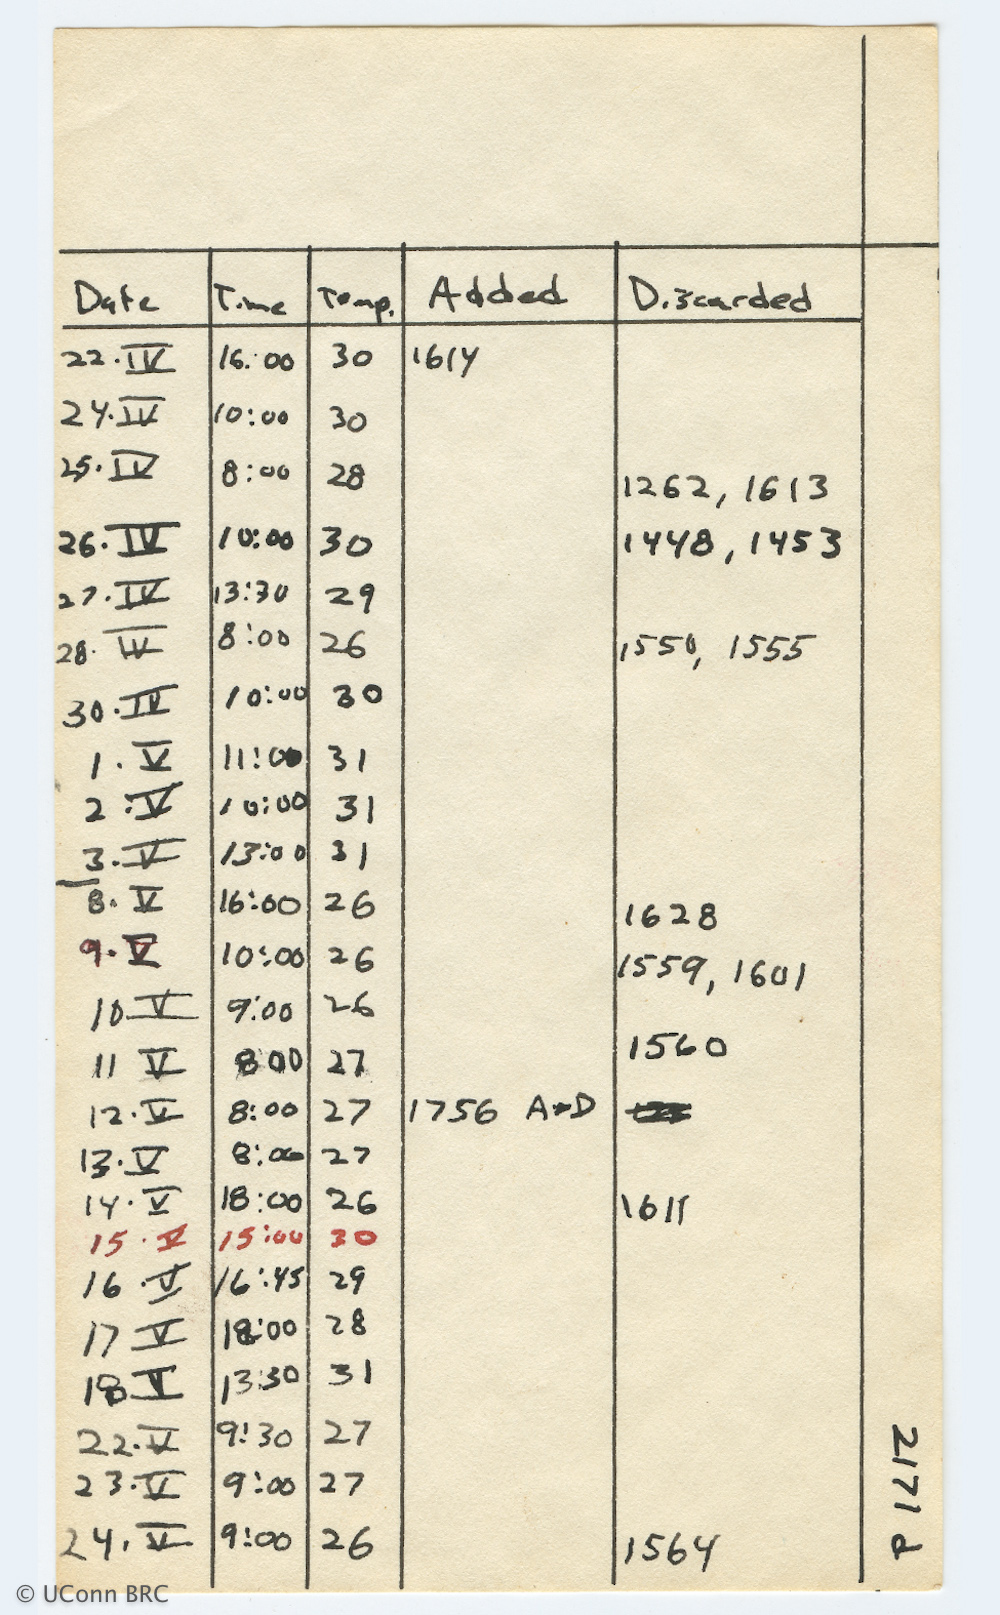 Date Time Temp. Added Discarded
22.IV 16:00 30 1614
24.IV 10:00 30
25.IV 8:00 28 1262, 1613
26.IV 10:00 30 1448, 1453
27.IV 13:30 29
28.IV 8:00 26 1550, 1555
30.IV 10:00 30
1.V 11:00 31
2.V 10:00 31
3.V 13:00 31
8.V 16:00 26 1628
9.V 10:00 26 1559, 1601
10 V 9:00 26
11 V 8 00 27 1560
12.V 8:00 27 1756 A→D
13.V 8:00 27
14.V 18:00 26 1611
15.V 15:00 30
16.V 16:45 29
17 V 18:00 28
18 V 13:30 31
22.V 9:30 27
23.V 9:00 27
24.V 9:00 26 1564
2171 d
© UConn BRC